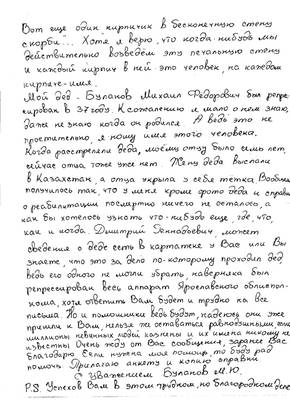 Вот еще один кирпичик в бесконечную стену
скорби... Хотя я верю, что когда-нибудь мы
действительно возведём эту печальную стену
и каждый кирпич в ней это человек, на каждом
кирпиче имя.
Мой дед - Буланов Михаил Федорович был репре-
сирован в 37 году. К сожалению я мало о нем знаю,
даже не знаю когда он родился. А ведь это не
простительно я ношу имя этого человека.
Когда расстреляли деда, моему отцу было семь лет,
сейчас отца тоже уже нет. Жену деда выслали
в Казахстан, а отца укрыла у себя тетка. Вообщем
получилось так, что у меня кроме фото деда и справки
о реабилитации посмертно ничего не осталось, а
как бы хотелось узнать что-нибудь еще, где, что,
как и когда. Дмитрий Геннадьевич, может
сведения о деде есть в картатеке у Вас или Вы
знаете, что это за дело по-которому проходил дед
ведь его одного не могли убрать, наверняка был
репресирован весь аппарат Ярославского облиспол-
кома, хотя ответить Вам будет и трудно на все
письма. Но и помошники ведь будут, надеюсь они уже
пришли к Вам, нельзя же оставаться равнодушными
миллионы невинных людей казнены и их имена никому не
известны. Очень жду от Вас сообщения, заранее Вас
благодарю. Если нужна моя помощь, то буду рад
помочь. Прилагаю анкету и копию справки
С уважением Буланов М.Ю.
P.S. Успехов Вам в этом трудном, но благородном деле